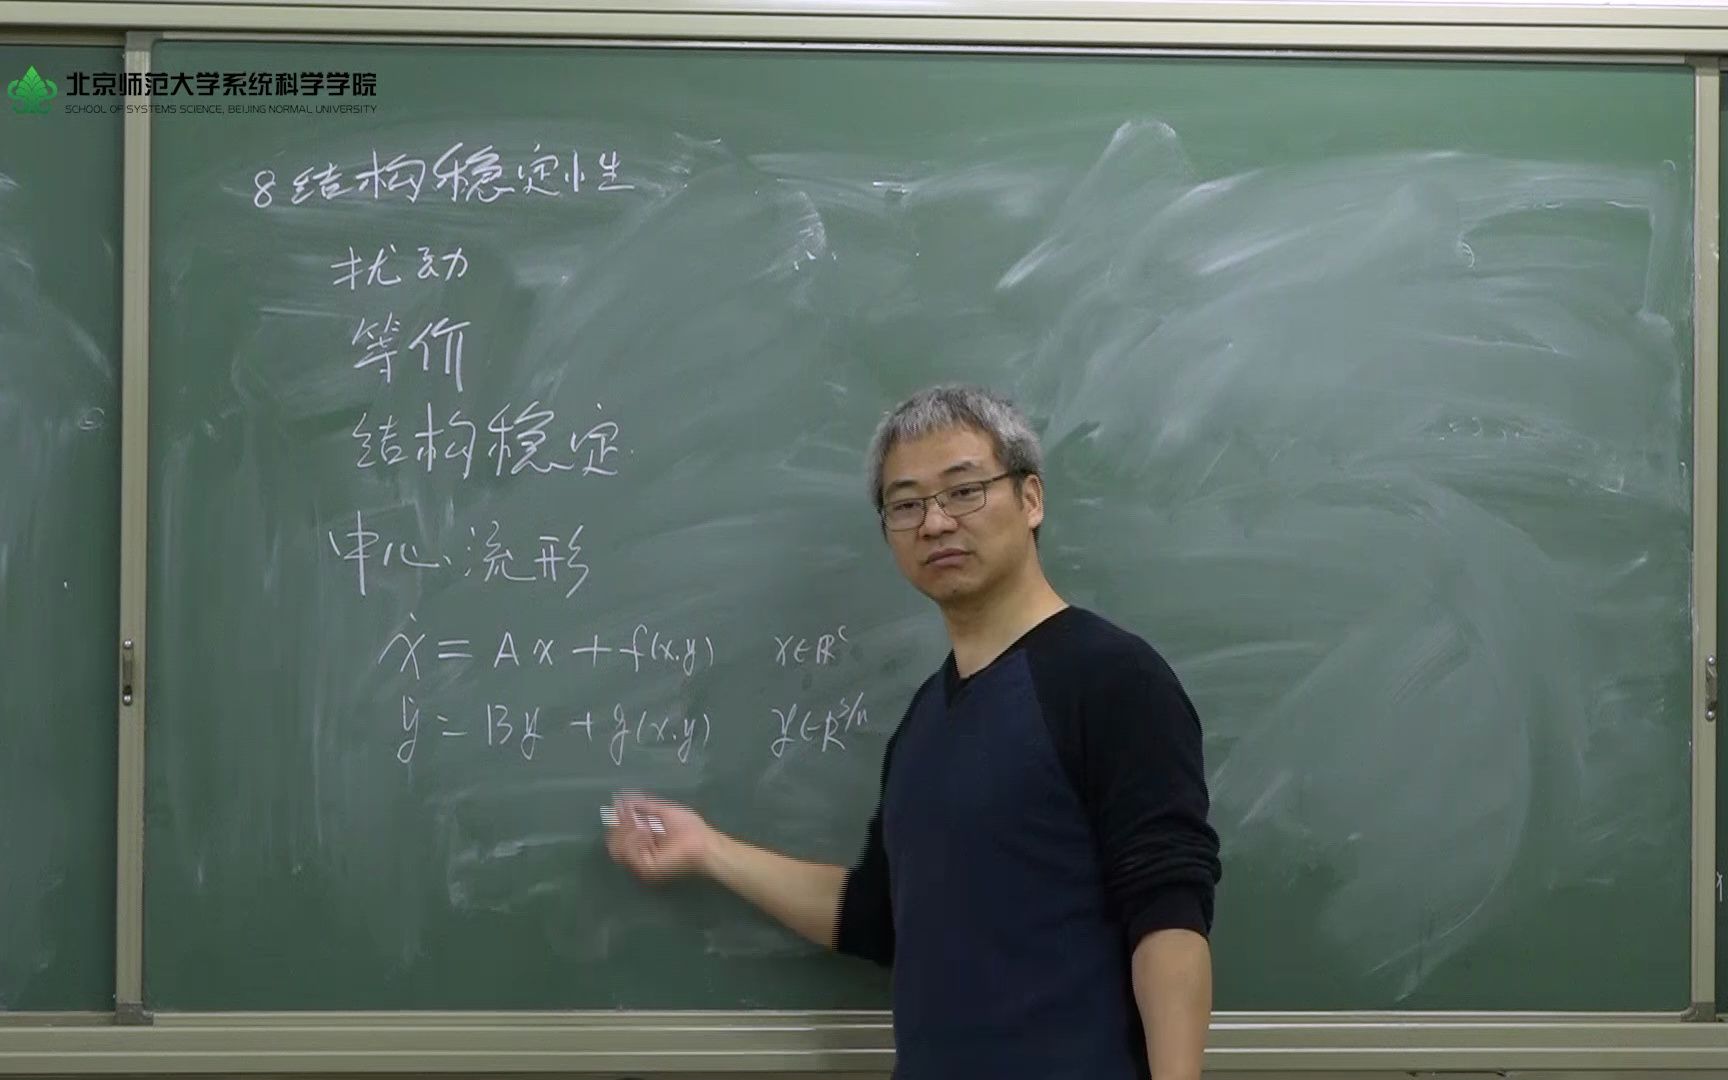 北京师范大学系统科学学院
SCHOOL OF SYSTEMS SCIENCE, BEIJING NORMAL UNIVERSITY
8 结构稳定性
扰动
等价
结构稳定.
中心流形
ẋ = Ax + f(x.y) x∈R^c
ẏ = By + g(x.y) y∈R^s/u